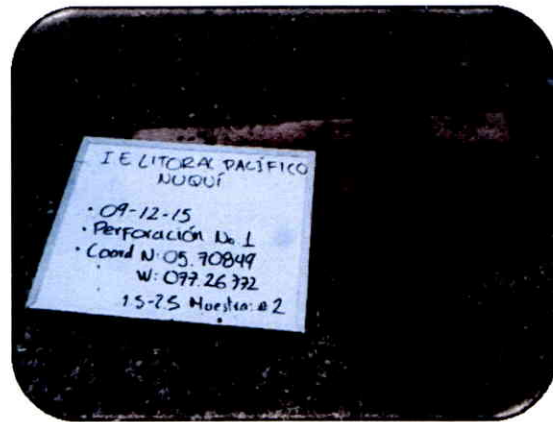 I E LITORAL PACÍFICO
NUQUÍ
· 09-12-15
· Perforación No. 1
· Coord N: 05.70849
W: 077.26772
1.5-2.5 Muestra: #2